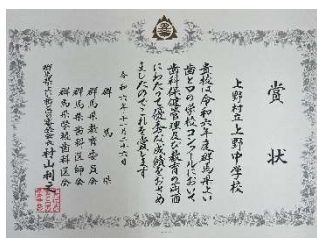 賞状
上野村立上野中学校
貴校は令和六年度群馬県よい
歯と口の学校コンクールにおいて
歯科保健管理及び教育の両面
にわたって優秀な成績をおさめ
ましたのでこれを賞します
令和六年十一月二十六日
群馬県
群馬県教育委員会
群馬県歯科医師会
群馬県学校歯科医会
村山利之